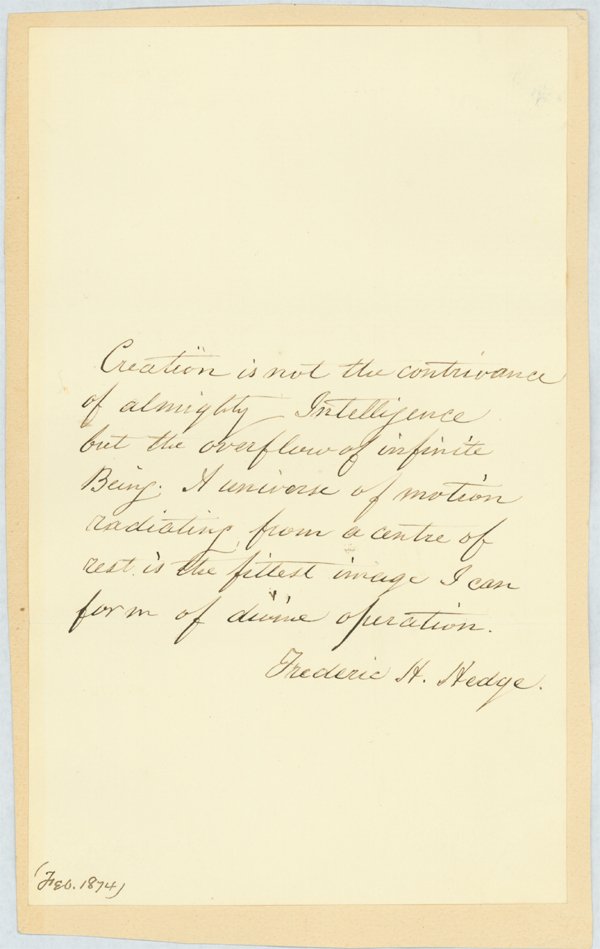 Creation is not the contrivance
of almighty Intelligence
but the overflow of infinite
Being. A universe of motion
radiating from a centre of
rest is the fittest image I can
form of divine operation.
Frederic H. Hedge.
(Feb. 1874)